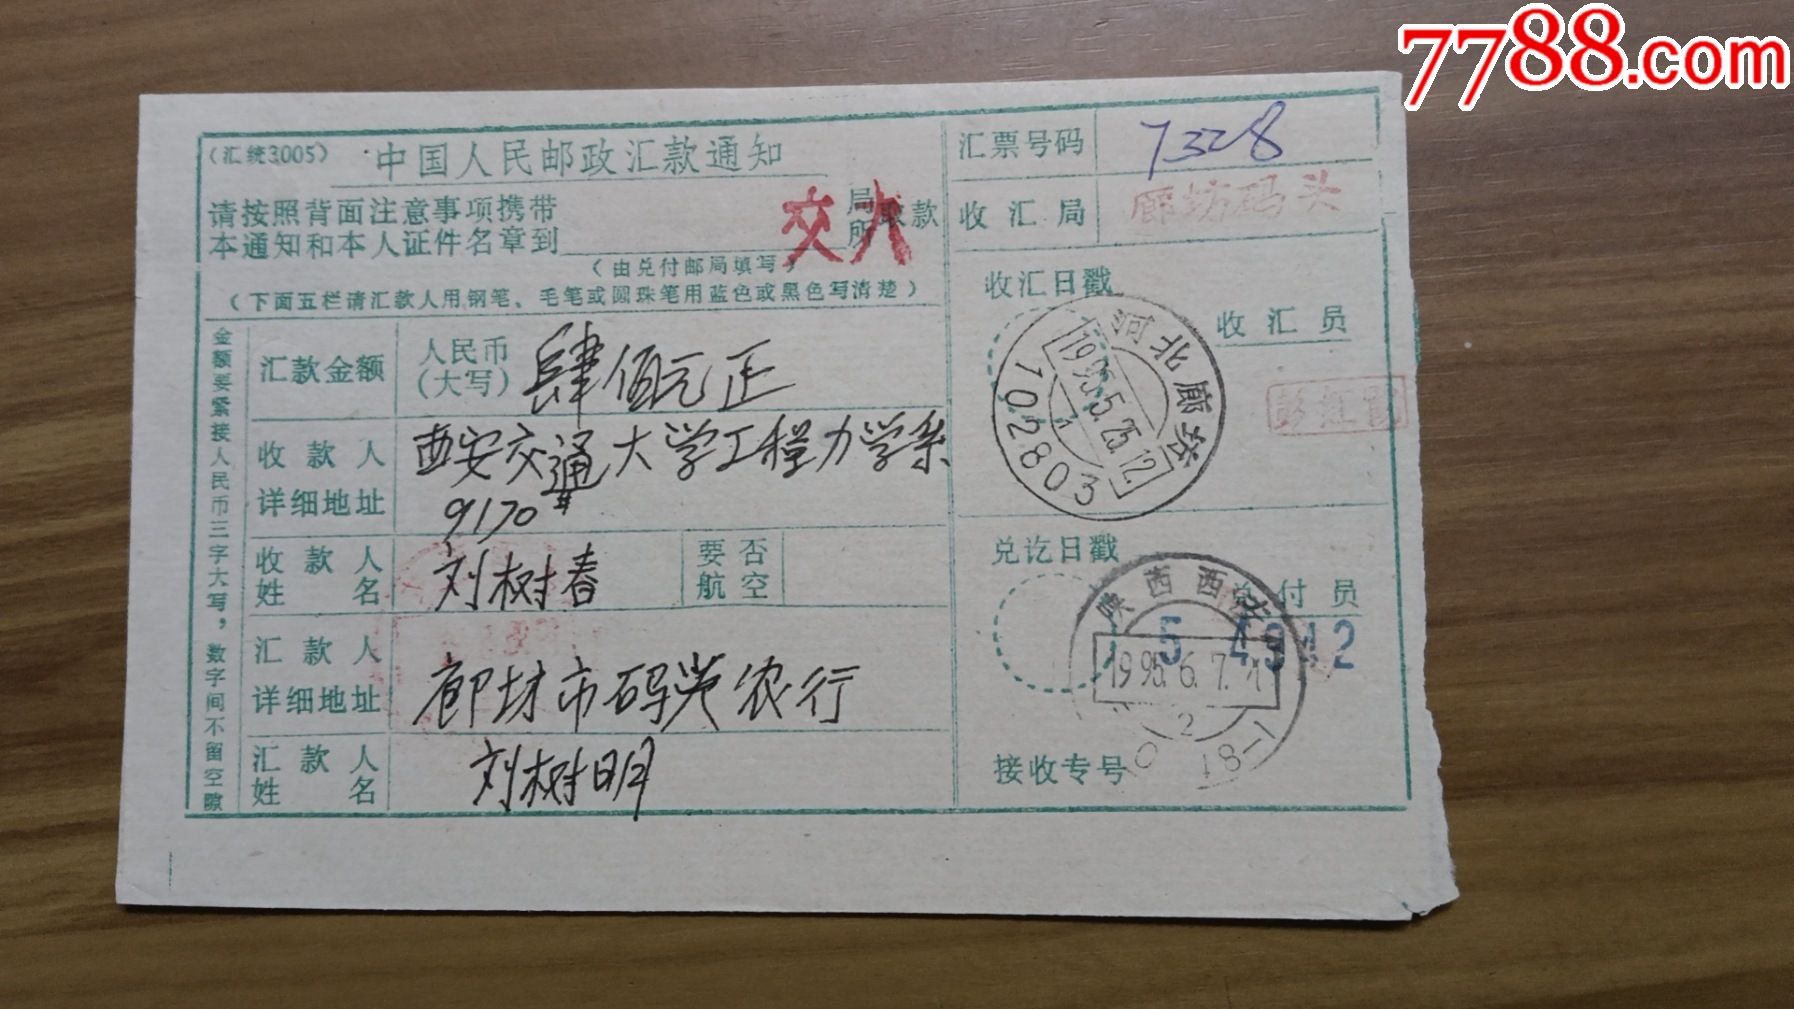 7788.com
(汇统3005)
中国人民邮政汇款通知
请按照背面注意事项携带
本通知和本人证件名章到
交大
局
所
取款
(由兑付邮局填写)
(下面五栏请汇款人用钢笔、毛笔或圆珠笔用蓝色或黑色写清楚)
金额要紧接人民币三字大写,数字间不留空隙
汇款金额
人民币
(大写)
肆佰元正
收款人
详细地址
西安交通大学工程力学系
9170#
收款人
姓名
刘树春
要否
航空
汇款人
详细地址
廊坊市码头农行
汇款人
姓名
刘树明
汇票号码
7328
收汇局
廊坊码头
收汇日戳
收汇员
河北廊坊
1995.5.25.12
102803
兑讫日戳
兑付员
陕西西安
5 4942
1995.6.7.
接收专号